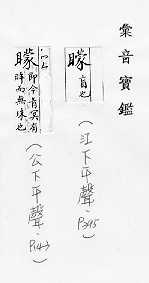 彙音寶鑑
矇 盲也
(江下平聲·P395)
矇 即今青冥有
眸而無珠也
(公下平聲·P143)